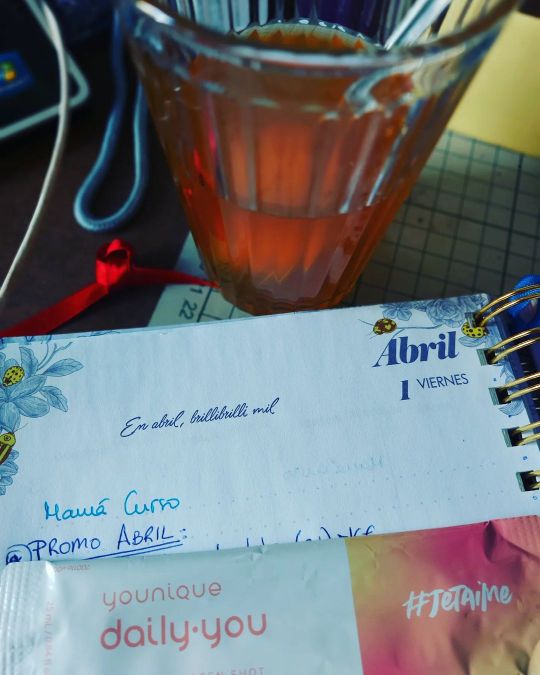 22
Abril
1 VIERNES
En abril, brillibrilli mil
Mamá Curso
PROMO ABRIL:
younique
daily·you
#JETAIME
SHOT